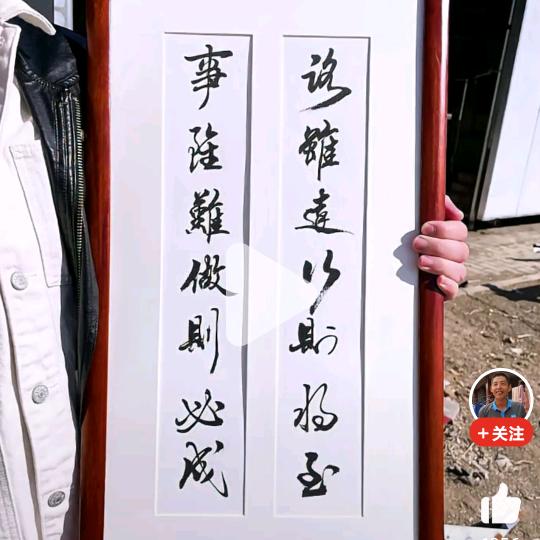 路雖遠行則將至
事雖難做則必成
+关注